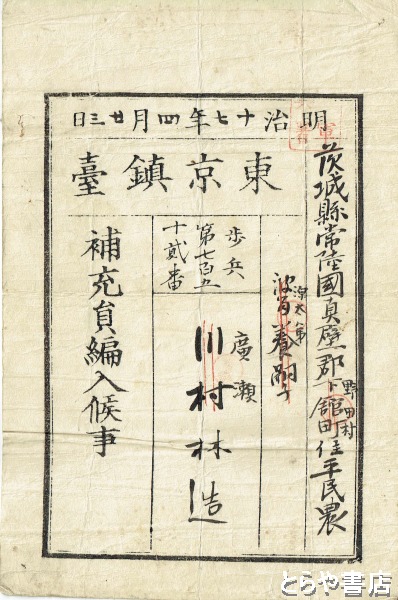 明治十七年四月廿三日
東京鎮臺
茨城縣常陸國真壁郡下館町住平民農
野田村
養嗣子
歩兵
第七百五
十貳番
廣瀬
川村林造
補充員編入候事
とらや書店